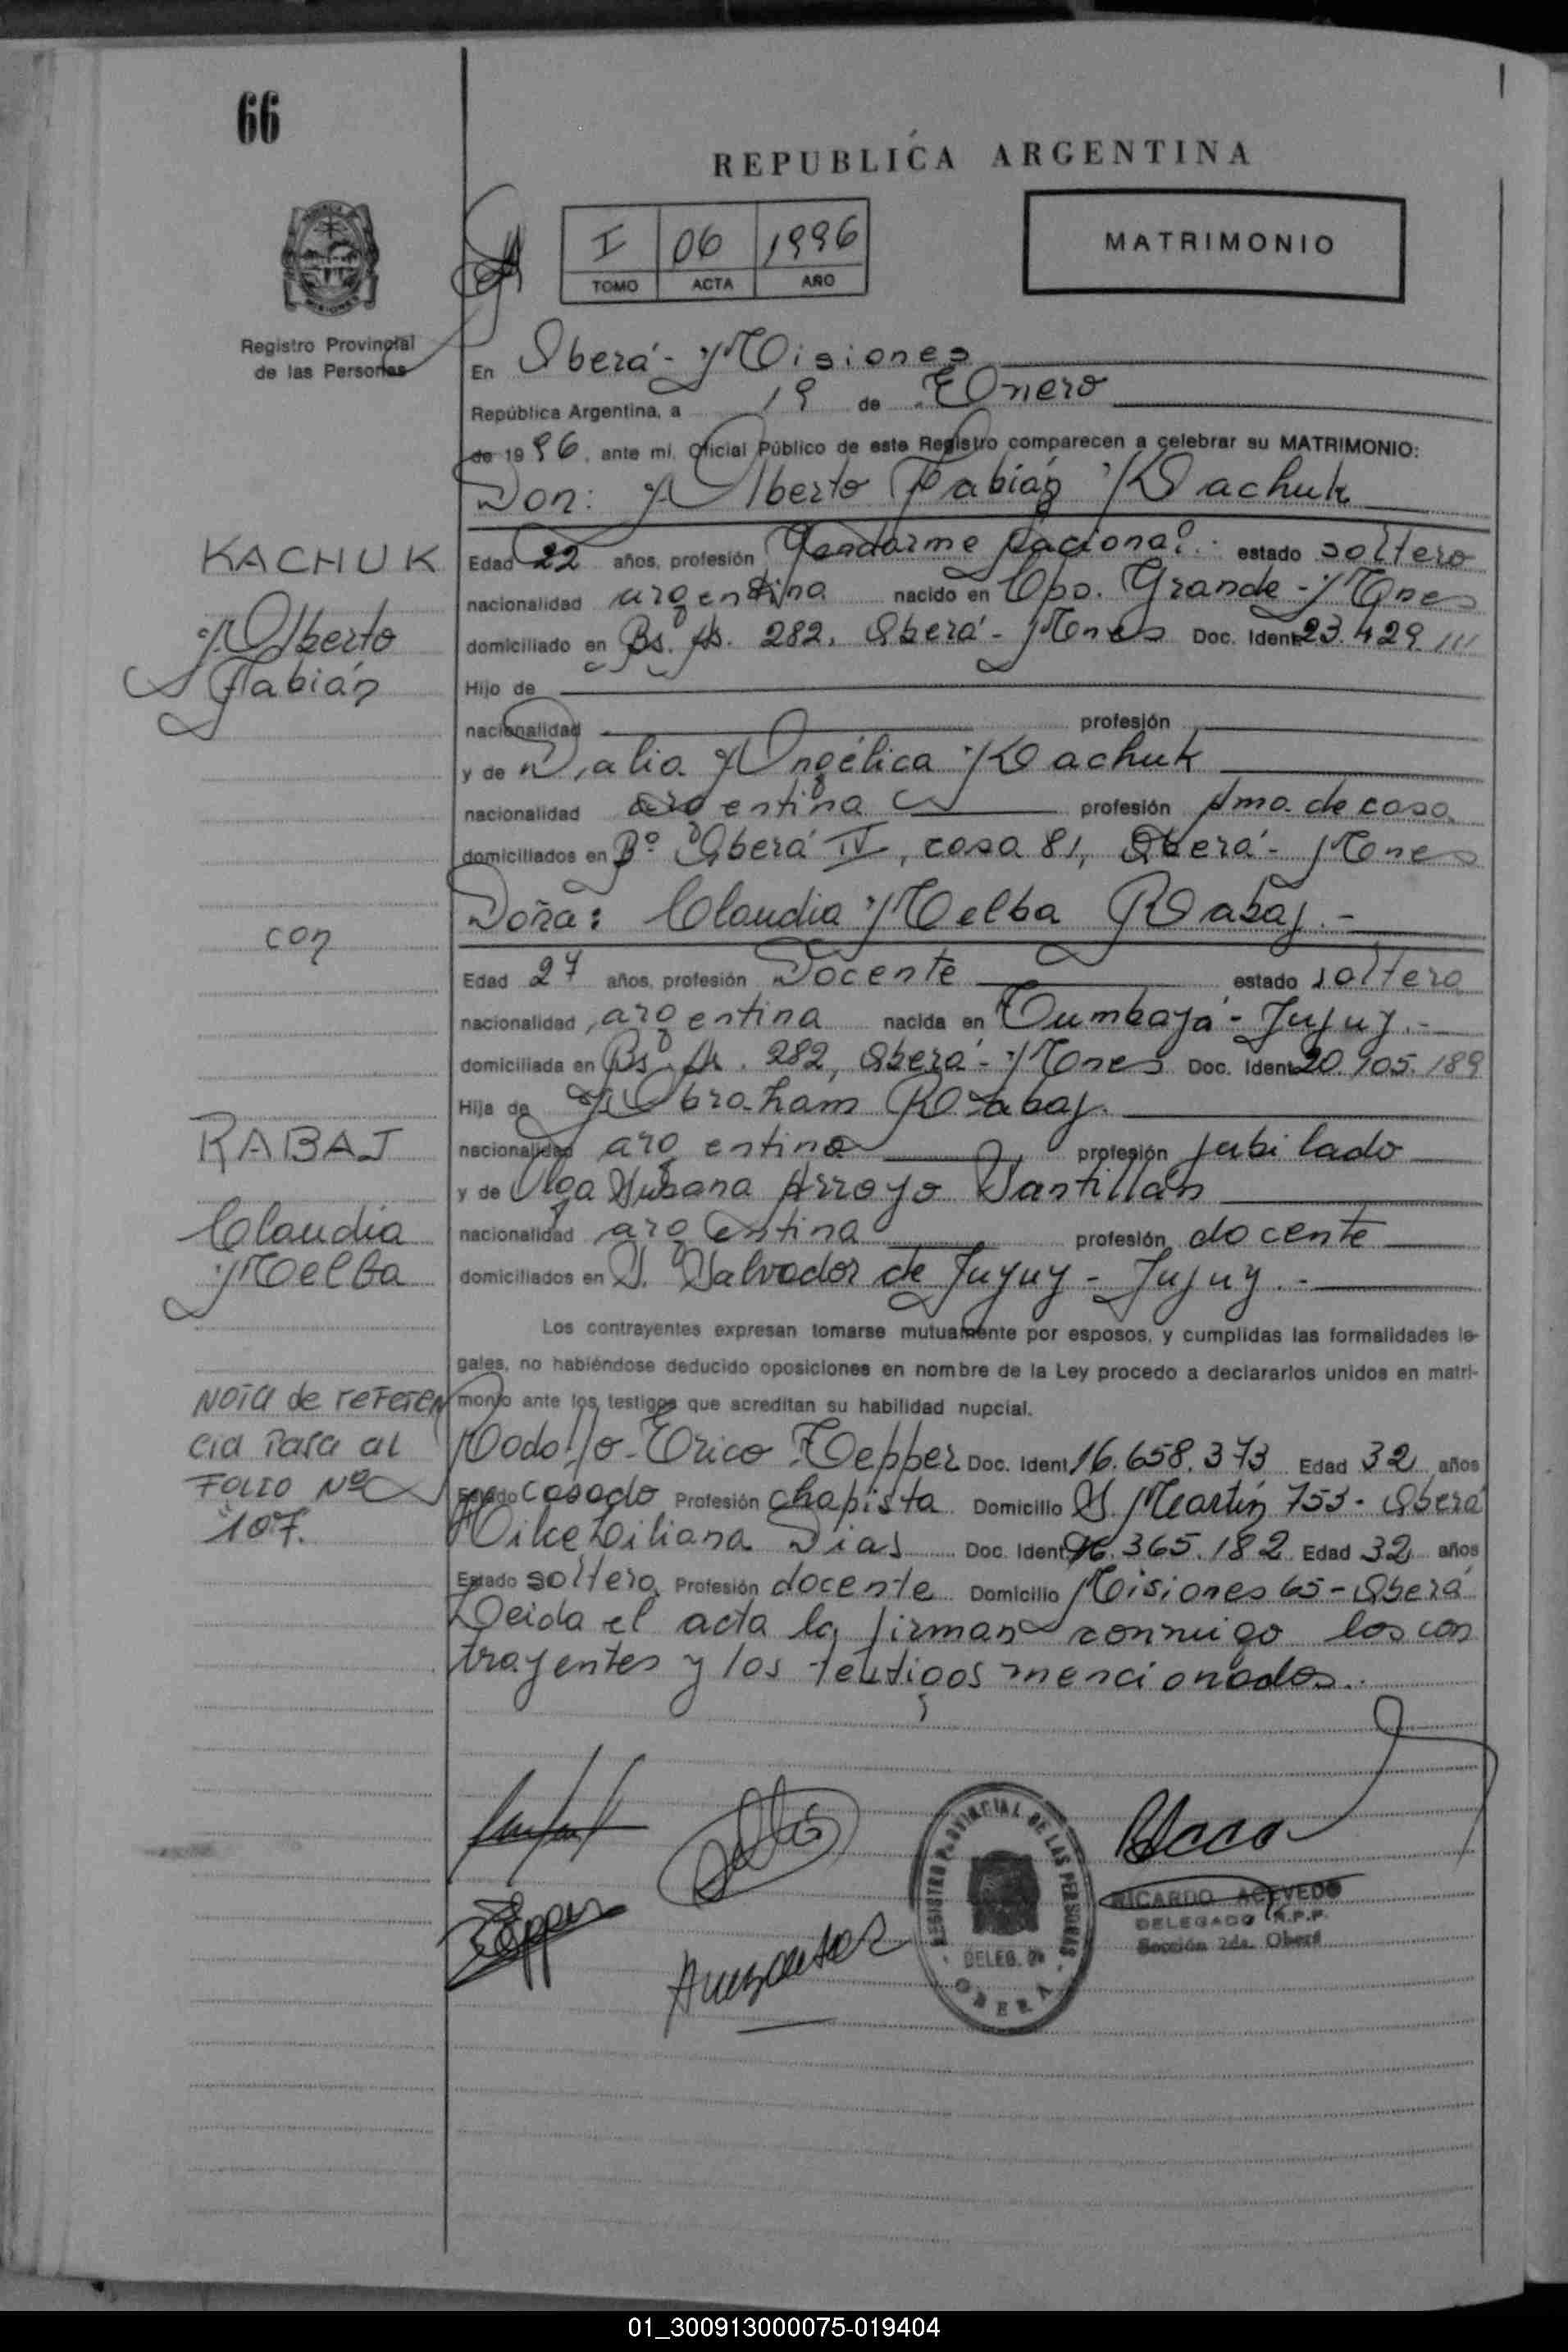 66
REPUBLICA ARGENTINA
I 06 1996
TOMO ACTA AÑO
MATRIMONIO
Registro Provincial
de las Personas
En Oberá - Misiones
República Argentina, a 19 de Enero
de 1996, ante mí, Oficial Público de este Registro comparecen a celebrar su MATRIMONIO:
Don: Alberto Fabián Kachuk
KACHUK
Alberto
Fabián
Edad 22 años, profesión Gendarme Nacional.- estado soltero
nacionalidad argentina nacido en Cpo. Grande - Mnes
domiciliado en Bs. As. 282, Oberá - Mnes Doc. Ident. 23.429.111
Hijo de
nacionalidad profesión
y de Dalia Angélica Kachuk
nacionalidad argentina profesión Ama de casa
domiciliados en Bº Oberá IV, casa 81, Oberá - Mnes
Doña: Claudia Melba Rabaj.-
con
Edad 27 años, profesión Docente estado soltera
nacionalidad argentina nacida en Tumbaya - Jujuy.-
domiciliada en Bs. As. 282, Oberá - Mnes Doc. Ident. 20.105.189
Hija de Abraham Rabaj.
RABAJ
Claudia
Melba
nacionalidad argentina profesión jubilado
y de Olga Susana Arroyo Santillán
nacionalidad argentina profesión docente
domiciliados en S. Salvador de Jujuy - Jujuy.-
Los contrayentes expresan tomarse mutuamente por esposos, y cumplidas las formalidades le-
gales, no habiéndose deducido oposiciones en nombre de la Ley procedo a declararlos unidos en matri-
monio ante los testigos que acreditan su habilidad nupcial.
NOTA de REFEREN
CIA PASA al
FOLIO Nº
107.
Rodolfo Erico Tepper Doc. Ident 16.658.373 Edad 32 años
Estado casado Profesión chapista Domicilio S. Martín 753 - Oberá
Hilce Liliana Dias Doc. Ident 16.365.182 Edad 32 años
Estado soltera Profesión docente Domicilio Misiones 65 - Oberá
Leida el acta la firman conmigo los con
trayentes y los testigos mencionados.
REGISTRO PROVINCIAL DE LAS PERSONAS
DELEG. 2a
OBERA
RICARDO ACEVEDO
DELEGADO R.P.P.
Sección 2da. Oberá
01_300913000075-019404